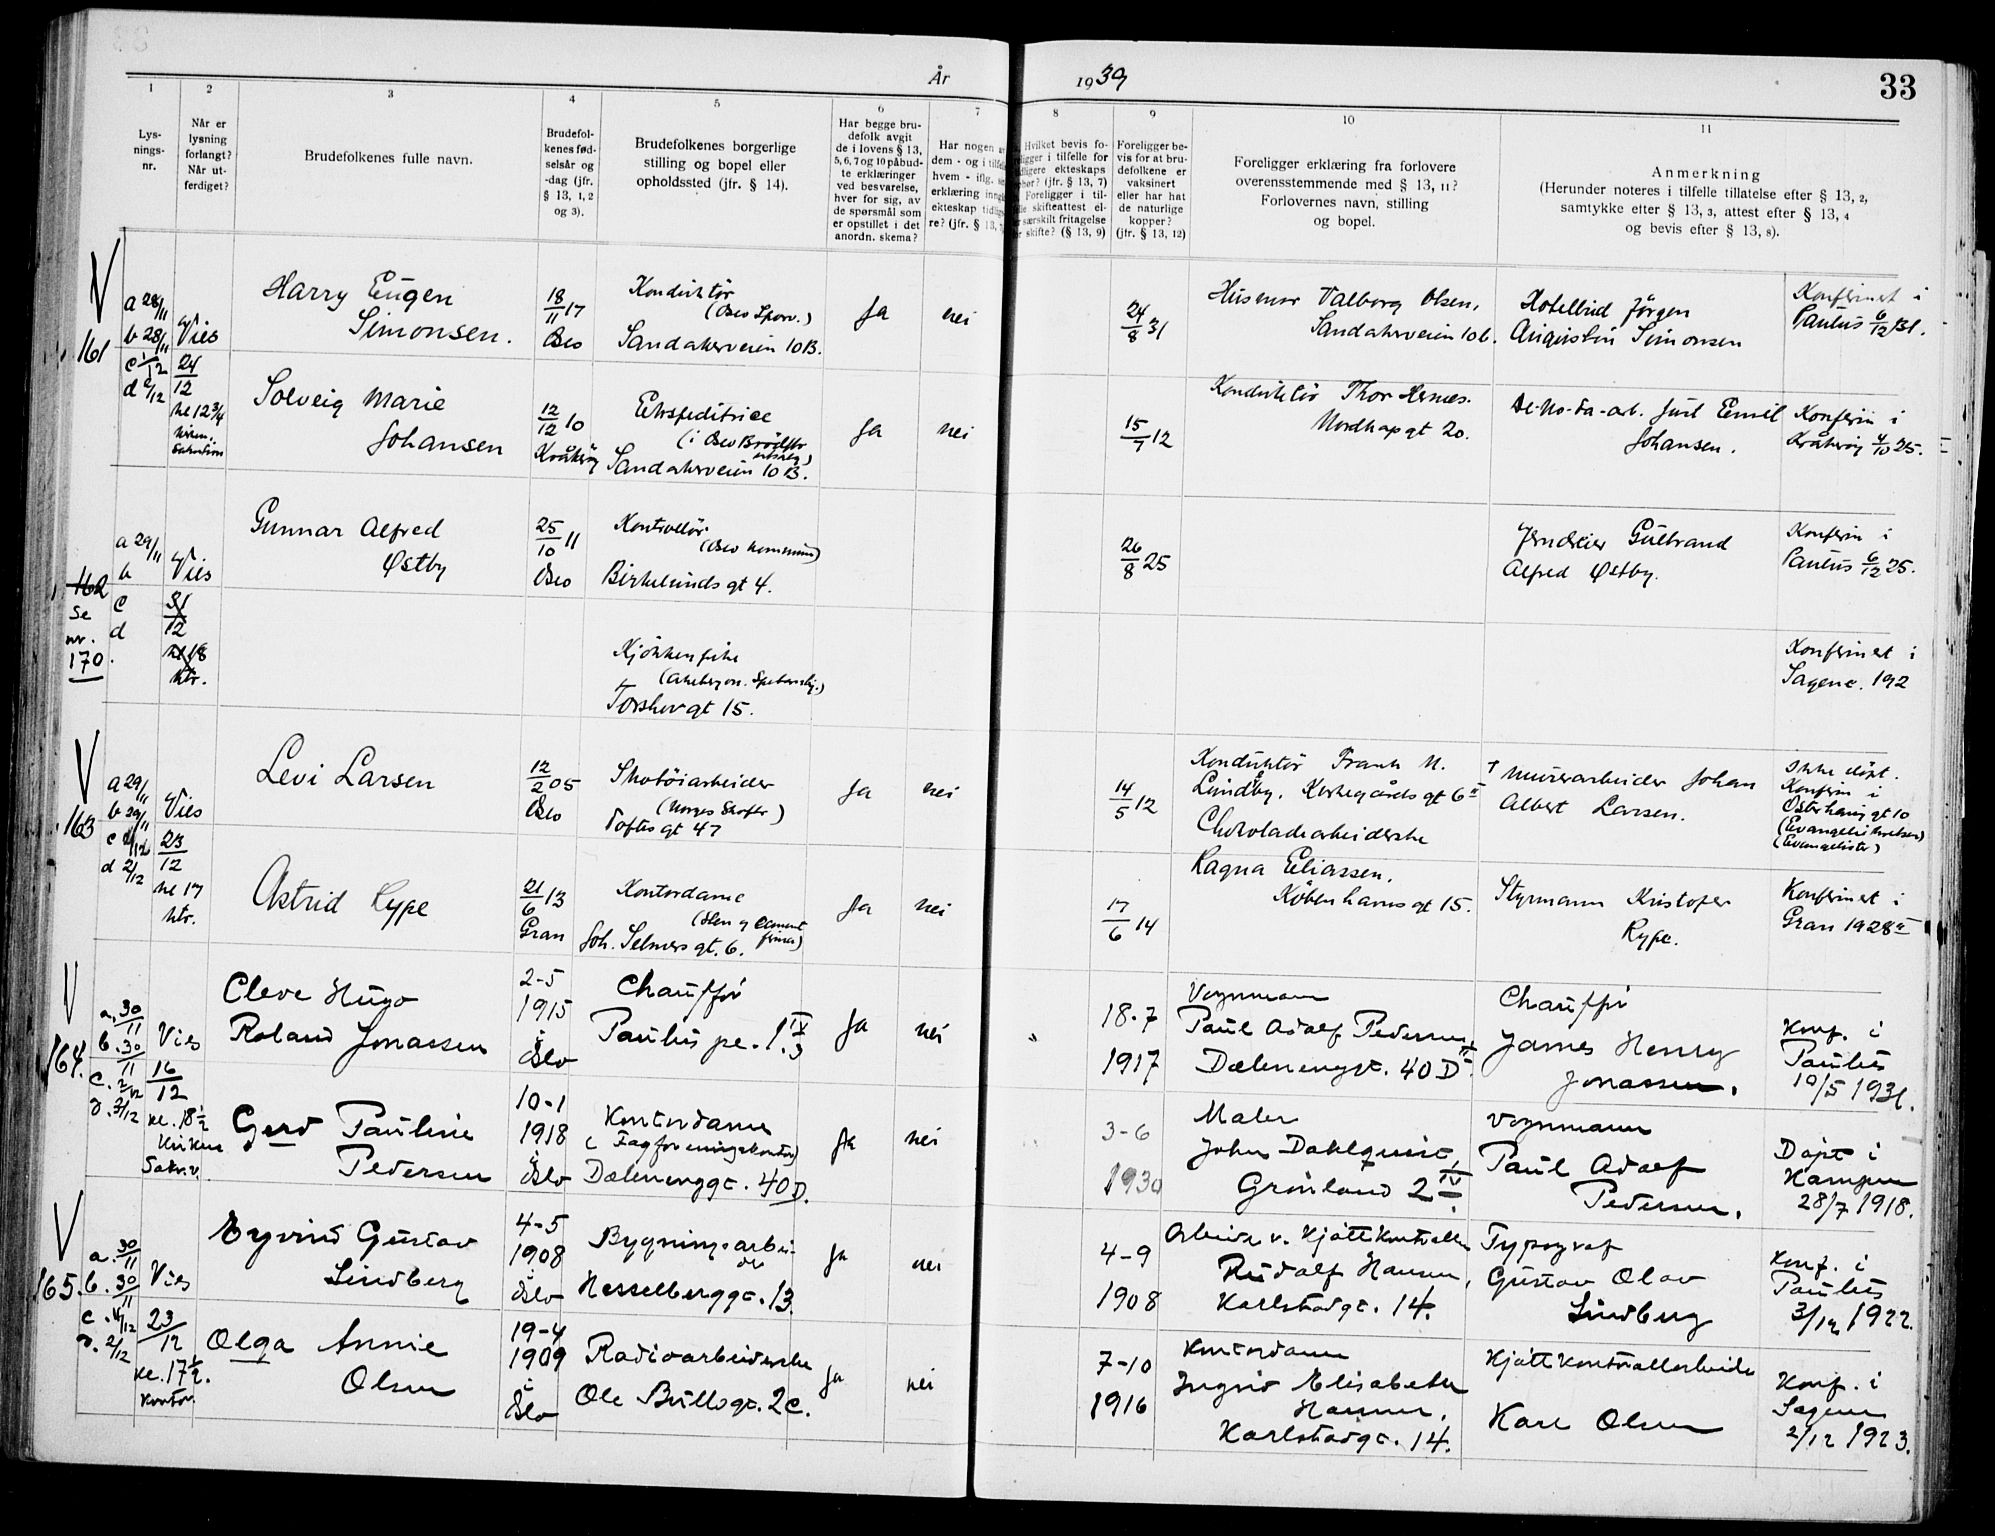 År 1939
33
1
2
3
4
5
6
7
8
9
10
11
Lys-
nings-
nr.
Når er
lysning
forlangt?
Når ut-
ferdiget?
Brudefolkenes fulle navn.
Brudefol-
kenes fød-
selsår og
-dag (jfr.
§ 13, 1, 2
og 3).
Brudefolkenes borgerlige
stilling og bopel eller
opholdssted (jfr. § 14).
Har begge bru-
defolk avgit
de i lovens § 13,
5, 6, 7 og 10 påbud-
te erklæringer
ved besvarelse,
hver for sig, av
de spørsmål som
er opstillet i det
anordn. skema?
Har nogen
dem - og i
hvem - iflg.
erklæring
ekteskap
re? (jfr. § 13,
Hvilket bevis fo-
i tilfelle for
ekteskaps
(jfr. § 13, 7)
Foreligger i til-
skifteattest el-
særskilt fritagelse
skifte? (§ 13, 9)
Foreligger be-
vis for at bru-
defolkene er
vaksinert
eller har hat
de naturlige
kopper?
(jfr. § 13, 12)
Foreligger erklæring fra forlovere
overensstemmende med § 13, 11?
Forlovernes navn, stilling
og bopel.
Anmerkning
(Herunder noteres i tilfelle tillatelse efter § 13, 2,
samtykke etter § 13, 3, attest efter § 13, 4
og bevis efter § 13, 8).
V
161
a 28/11
b 28/11
c 1/12
d 2/12
Vies
24/12
kl 12 3/4
Harry Eugen
Simonsen.
18/11 17
Oslo
Konduktör
(Oslo Sporv.)
Sandakerveien 10B.
Ja
nei
24/8 31
Husmor Valborg Olsen,
Sandakerveien 10b.
Hotellbud Jörgen
Augustin Simonsen
Konfirmert i
Paulus 6/12 31.
Solveig Marie
Johansen
12/12 10
Kråkerøy
Ekspeditrice
(i Oslo Brödfbr.
utsalg)
Sandakerveien 10B.
Ja
nei
15/7 12
Konduktör Thor Hernes.
Nordkapgt 20.
De-No-Fa-arb. Juul Emil
Johansen.
Konfirm i
Kråkeröy 4/10 25.
162
Se
nr.
170.
a 29/11
b
c
d
Vies
31/12
kl 18
ktr.
Gunnar Alfred
Østby
25/10 11
Oslo
Kontrollör
(Oslo kommune)
Birkelunds gt 4.
26/8 25
Gulbrand
Alfred Østby.
Konfirm i
Paulus 6/12 25.
Kjökkenpike
Torshovgt 15.
Konfirmert i
Sagene. 192
V
163
a 29/11
b 29/11
c 1/12
d 2/12
Vies
23/12
kl 17
ktr.
Levi Larsen
12/2 05
Oslo
Skotöiarbeider
(Norges Skofbr)
Toftes gt 47
Ja
nei
14/5 12
Konduktör Frank M.
Lundby. Kirkegårdsgt 6 II
Chokoladearbeiderske
Ragna Eliassen,
Københavnsgt 15.
† Murerarbeider Johan
Albert Larsen.
Ikke döpt.
Konfirm i
Osterhausgt 10
(Evangeliekirken)
(Evangelister)
Astrid Rype
21/6 13
Gran
Kontordame
(Sten og Cement
firma)
Joh. Selmers gt. 6.
Ja
nei
17/6 14
Styrmann Kristofer
Rype.
Konfirmert i
Gran 1928
V
164.
a. 30/11
b. 30/11
c. 2/12
d. 2/12
Vies
16/12
kl. 18 1/2
Kirken
Sakr.v.
Cleve Hugo
Roland Jonassen
2-5
1915
i
Oslo
Chauffør
Paulus pl. 1. IV
Ja
nei
18-7
1917
Vognmann
Paul Adolf Pedersen,
Dælenenggt. 40 D
Chauffør
James Henry
Jonassen.
Konf. i
Paulus
10/5 1931.
Gerd Pauline
Pedersen
10-1
1918
i
Oslo
Kontordame
(Fagforeningskontor)
Dælenenggt. 40 D.
Ja
nei
3-6
1930
Maler
John Dahlquist,
Grønland 2 IV.
Vognmann
Paul Adolf
Pedersen.
Døpt i
Kampen
28/7 1918.
V
165.
a. 30/11
b. 30/11
c. 4/12
d. 2/12
Vies
23/12
kl. 17 1/2.
Kontor
Eyvind Gustav
Lindberg
4-5
1908
i
Oslo
Bygningsarbei-
der
Hesselberggt. 13.
Ja
nei
4-9
1908
Arbeider v. Kjøttkontrollen
Rudolf Hansen,
Karlstadgt. 14.
Typograf
Gustav Olav
Lindberg
Konf. i
Paulus
3/12 1922.
Olga Annie
Olsen
19-4
1909
i
Oslo
Radioarbeiderske
Ole Bullsgt. 2 c.
Ja
nei
7-10
1916
Kontordame
Ingrid Elisabeth
Hansen,
Karlstadgt. 14.
Kjøttkontrollarbeider
Karl Olsen
Konf. i
Sagene
2/12 1923.